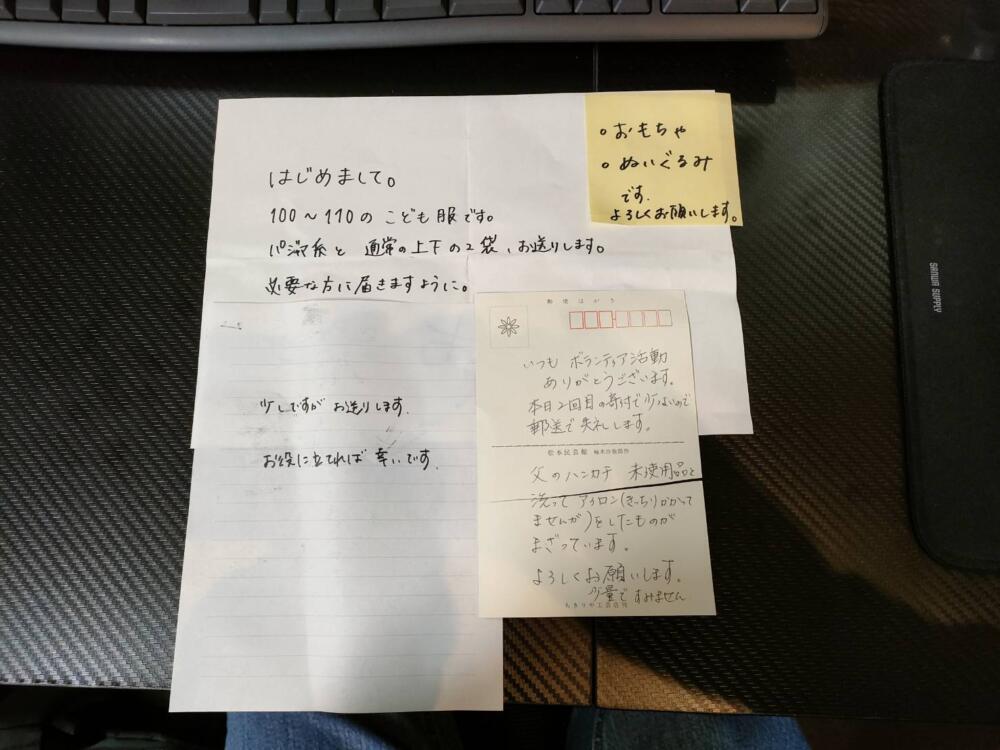 はじめまして。
100～110の こども服です。
パジャマ系と 通常の上下の2袋、お送りします。
必要な方に届きますように。
・おもちゃ
・ぬいぐるみ
です.
よろしくお願いします。
少しですが お送りします.
お役に立てれば 幸いです.
郵便はがき
いつも ボランティア活動
ありがとうございます。
本日2回目の寄付で少ないので
郵送で失礼します。
松本民芸館
父のハンカチ 未使用品と
洗って アイロン(きっちりかかって
ませんが)をしたものが
まざっています。
よろしくお願いします。
少量ですみません
ちきりや工芸店刊
SANWA SUPPLY